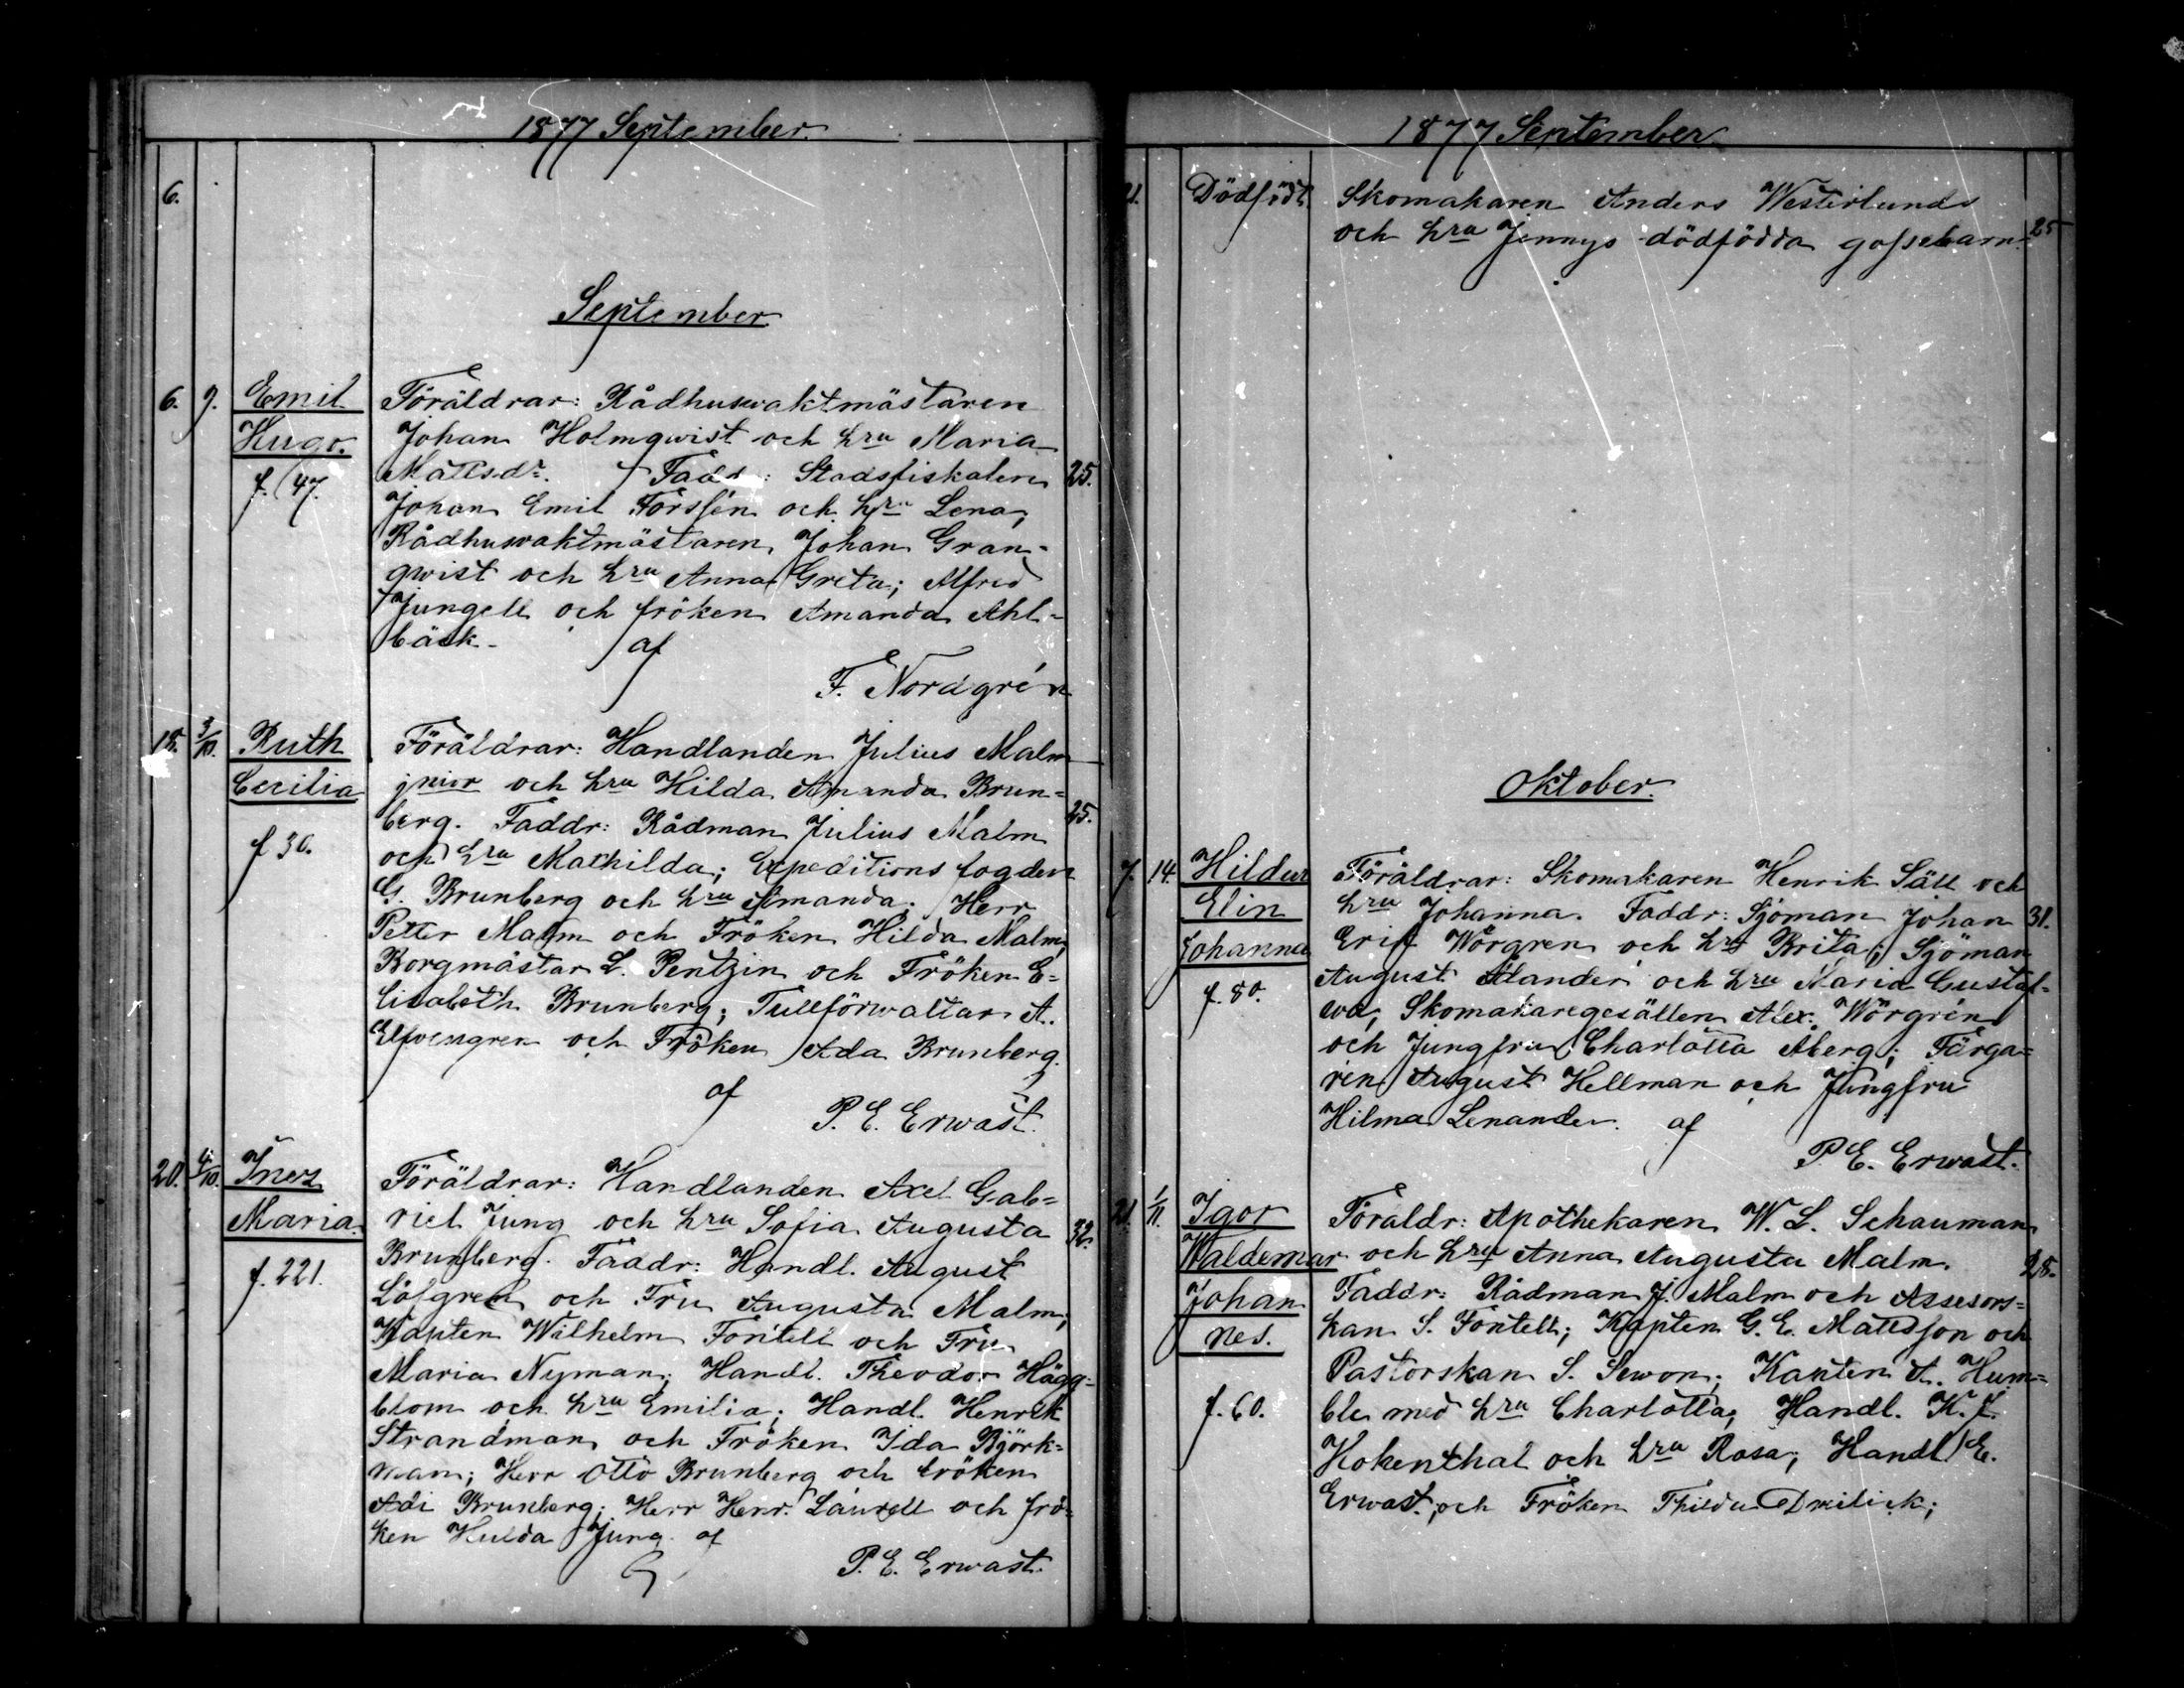 1877 September.
6.
September
6. 9. Emil Föräldrar: Rådhuswaktmästaren
Hugo. Johan Holmqwist och hru Maria
f. 47. Mattsdr. Fadd: Stadsfiskalen 25.
Johan Emil Forssén och hru Lena,
Rådhuswaktmästaren Johan Gran-
qwist och hru Anna Greta; Alfred
Jungell och fröken Amanda Ahl-
bäck. af
F. Nordgrén
18. 3/10. Ruth Föräldrar: Handlanden Julius Malm
Cecilia junior och hru Hilda Amanda Brun- 25.
berg. Faddr: Rådman Julius Malm
f 30. och hru Mathilda; Expeditions fogden
G. Brunberg och hru Amanda; Herr
Petter Malm och Fröken Hilda Malm;
Borgmästar L. Pentzin och Fröken E-
lisabeth Brunberg; Tullförwaltar A.
Elfvengren och Fröken Ada Brunberg.
af
P. E. Erwast.
20. 4/10. Inez Föräldrar: Handlanden Axel Gab-
Maria. riel Jung och hru Sofia Augusta 32.
f. 221. Brunberg. Faddr: Handl. August
Löfgren och Fru Augusta Malm;
Kapten Wilhelm Fontell och Fru
Maria Nyman; Handl. Theodor Hägg-
blom och hru Emilia; Handl. Henrik
Strandman och Fröken Ida Björk-
man; Herr Otto Brunberg och fröken
Adi Brunberg; Herr Henr. Laurell och frö-
ken Hulda Jung. af
P. E. Erwast.
1877 September.
21. Dödfödt. Skomakaren Anders Westerlunds
och hru Jennys dödfödda gossebarn. 25
Oktober.
7. 14. Hildur Föräldrar: Skomakaren Henrik Säll och
Elin hru Johanna. Faddr: Sjöman Johan 31.
Johanna Erik Wörgren och hru Brita; Sjöman
f. 80. August Alander och hru Maria Gustaf-
wa; Skomakaregesällen Alex. Wörgrén
och Jungfru Charlotta Åberg; Färga-
ren August Hellman och Jungfru
Hilma Lenander. af
P. E. Erwast.
21. 1/11. Igor Föräldr: Apothekaren W. L. Schauman
Waldemar och hru Anna Augusta Malm. 28.
Johan Faddr: Rådman J. Malm och Assesors-
nes. kan S. Fontell; Kapten G. E. Mattsson och
Pastorskan S. Sewon; Kapten A. Hum-
f. 60. ble med hru Charlotta; Handl. K. J.
Kokenthal och hru Rosa; Handl E.
Erwast; och Fröken Thilda